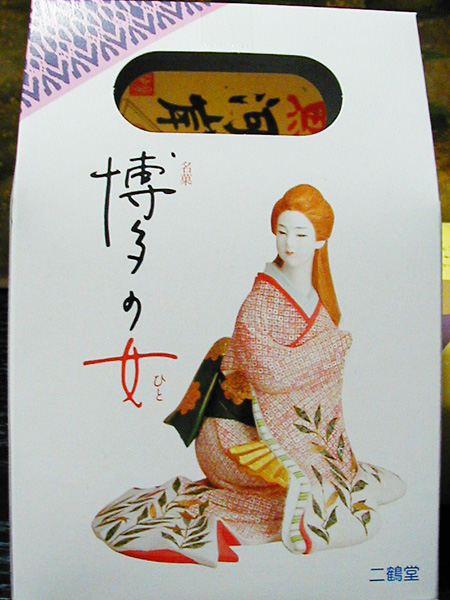 名菓
博多の女
ひと
二鶴堂